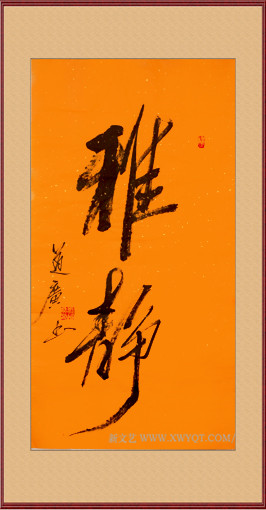 雅静
道广书
新文艺 WWW.XWYQT.COM/